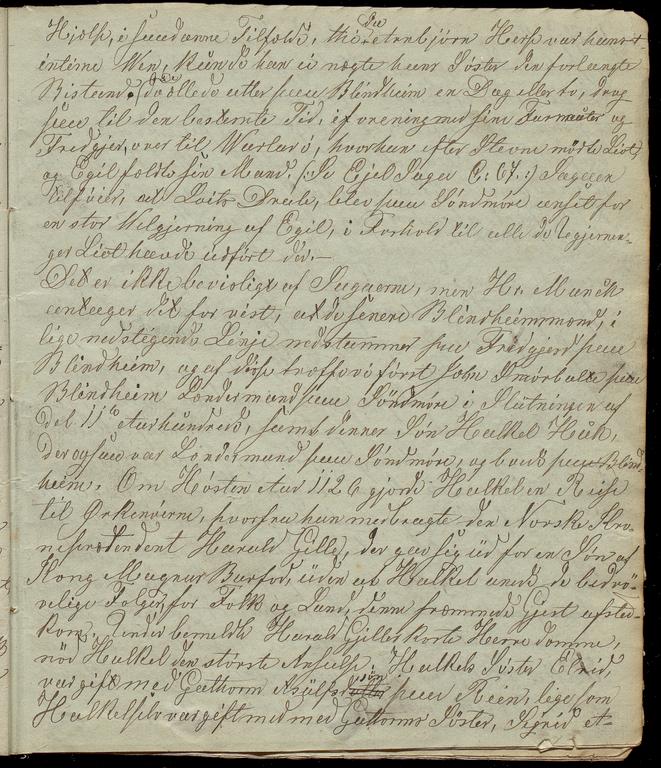 Hjelp, i saadanne Tilfælde, thi da Arnbjörn Herse var hans
intime Ven, kunde han ei nægte hans Söster den forlangte
Bistand, dvælede atter paa Blindheim en Dag eller to, drog
saa til den bestemte Tid, i forening med sine Farmænter og
Fredgjer, over til Warlarö, hvorhan efter Stevne mödte Liot,
og Egil fældte sin Mand. (: Se Egil Saga C: 67. :) Sagaen
tilföier, at Loits Drab, blev paa Söndmöre anset for
en stor Velgjerning af Egil, i Forhold til alle de Ugjernin-
ger Liot havde udfört der.—
Det er ikke bevisligt af Sagaerne, men Hr. Munch
antager det for vist, at de senere Blindheimmænd, i
lige nedstigende Linje nedstammer paa Fredgjerd paa
Blindheim, og af disse træffe vi först John Smörbalte paa
Blindheim Lændermand paa Söndmöre i Slutningen af
det 11te Aarhundrede, samt dennes Sön Halkel Huk,
der ogsaa var Lændermand paa Söndmöre, og boede paa Blind-
heim. Om Hösten Aar 1126 gjorde Halkel en Reise
til Orkenöerne, hvorfra han medbragte den Norske Kro-
nprætendent Harald Gille, der gav sig ud for en Sön af
Kong Magnus Barfod, uden at Halkel anede de bedrö-
velige Fölger, for Folk og Land, denne fræmmede Gjest afsted-
kom. Under bemeldte Harald Gilles korte Herredømme,
nöd Halkel den störste Anseelse. Halkels Söster Elrid,
var gift med Guthorm Asülfssön paa Rein, lige som
Halkel selv var gift med Guthorms Söster, Sigrid et-